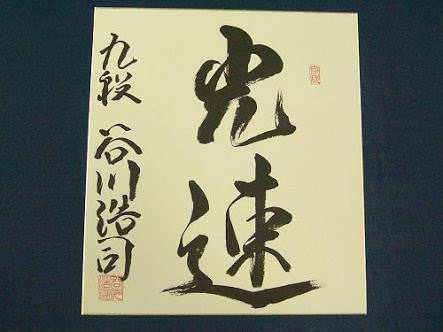 光速
九段 谷川浩司